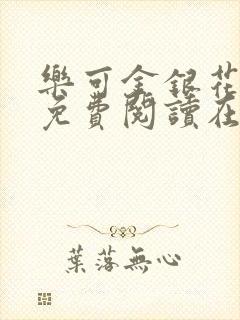 樂可金銀花
免費閱讀在
葉落無心